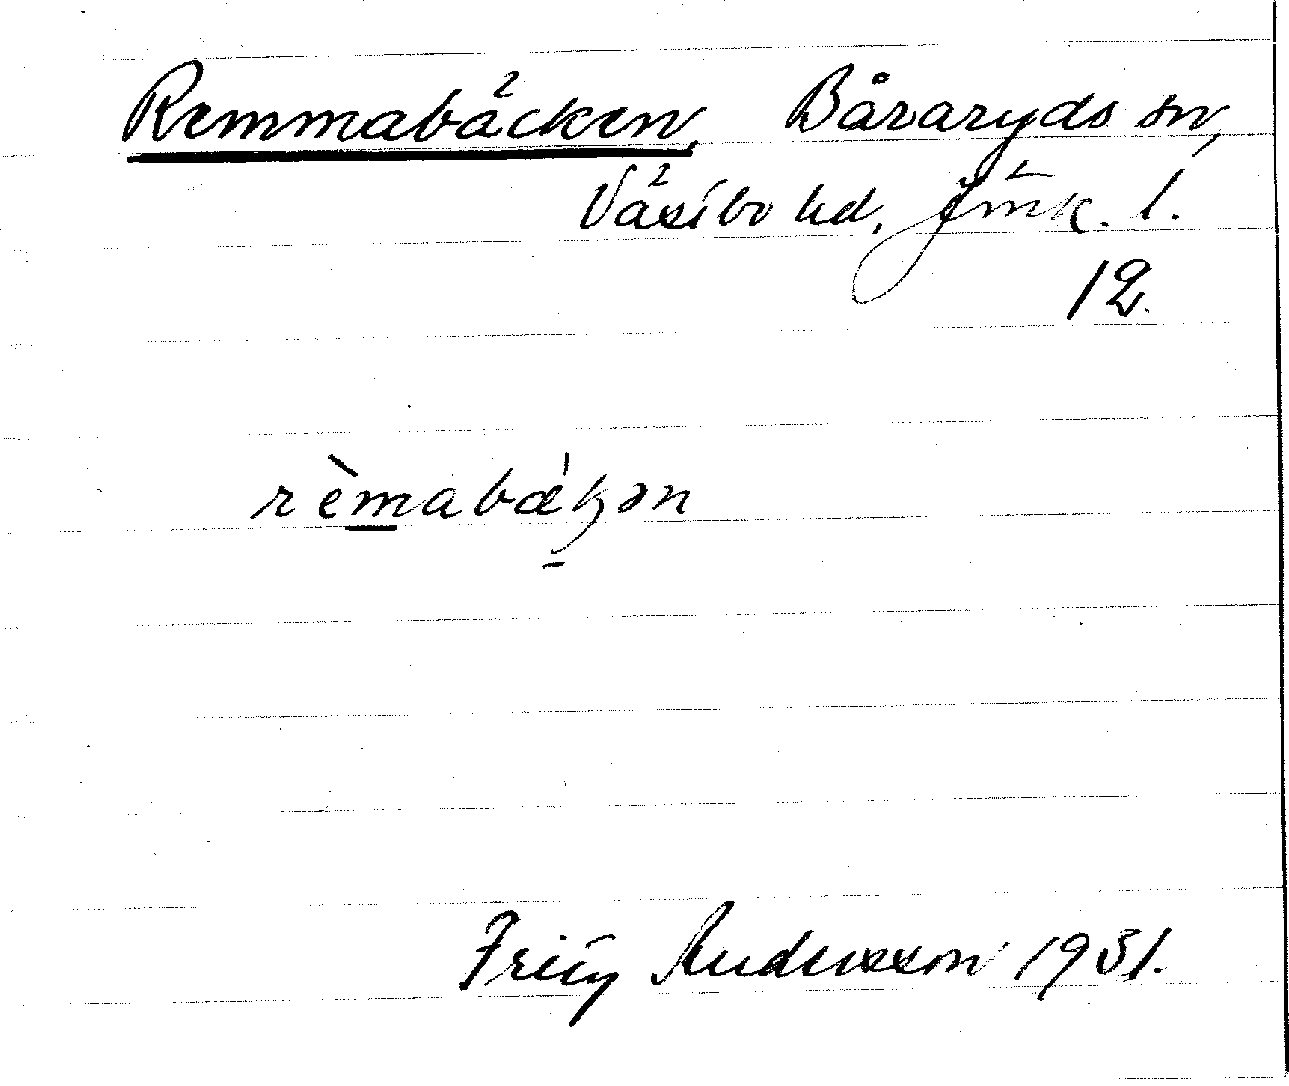 Remmabäcken, Båraryds sn,
Västbo hd, Jönk. l.
12.
rèmabǽkən
Fritz Andersson 1931.